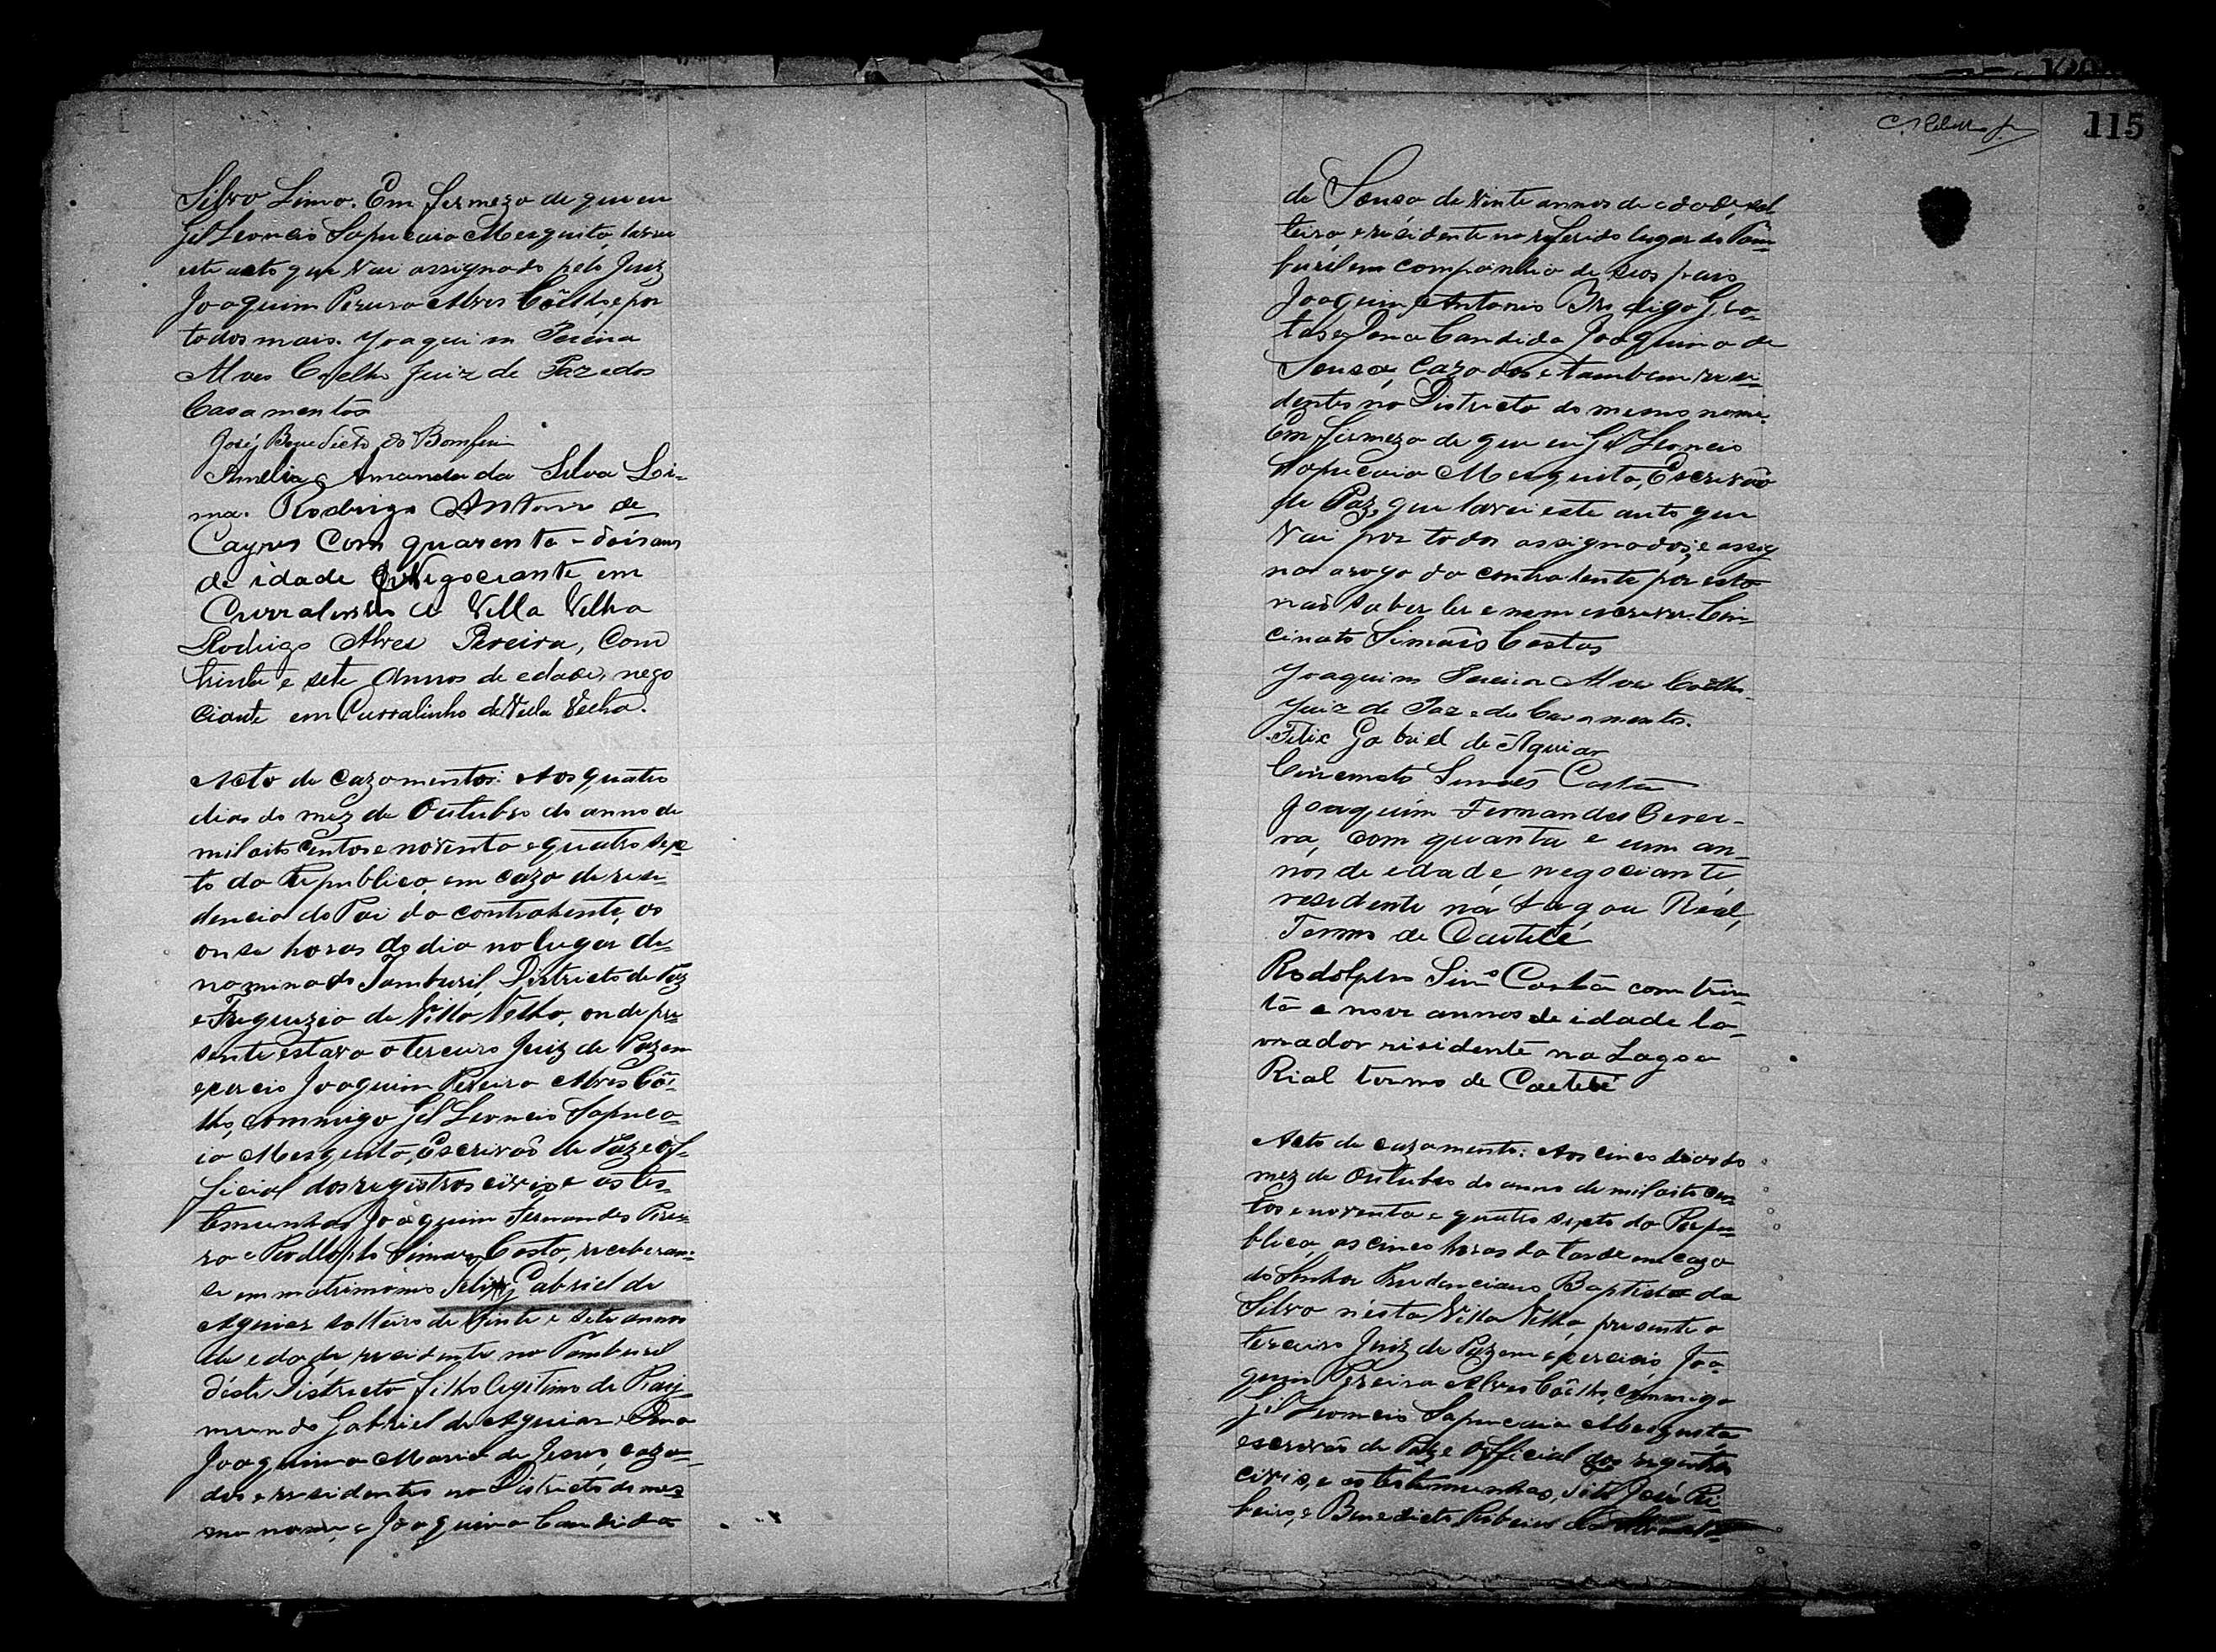 Silva Lima. Em fermeza de que eu
Gil Leoncio Sapucaia Mesquita, lavrei
este acto que vai assignado pelo Juiz
Joaquim Pereira Alves Côelho, e por
todos mais. Joaquim Pereira
Alves Coelho Juiz de Paz e dos
Casamentos
José Benedicto do Bomfim
Amelia Amanda da Silva Li-
ma. Rodrigo Antonio de
Cayres com quarenta e dois ans
de idade Negociante em
Curralinho de Villa Velha
Rodrigo Alves Pereira, com
trinta e sete annos de edade, nego
ciante em Curralinho de Villa Velha.
Acto de cazamentos: Aos quatro
dias do mez de Outubro do anno de
mil oito centos e noventa e quatro sex-
to da Republica, em caza de resi-
dencia do Pai da contrahente, as
onse horas do dia no lugar de-
nominado Tamburil, Districto de Paz
e Freguezia de Villa Velha, onde pre-
sente estava o terceiro Juiz de Paz em
exercio Joaquim Pereira Alves Côe-
lho, commigo Gil Leoncio Sapuca-
ia Mesquita, Escrivão de Paz e of-
ficial dos registros civis e as tes-
temunhas Joaquim Fernandes Perei-
ra e Rodolpho Simões Costa, receberam-
se em matrimonio Felix Gabriel de
Aguiar solteiro de vinte e sete annos
de edade, residente no Tamburil
déste Districto filho legitimo de Ray-
mundo Gabriel de Aguiar e Dona
Joaquina Maria de Jesus, caza-
dos e residentes no Districto do mes-
mo nome, e Joaquina Candida
115
de Sousa de vinte annos de edade, sol-
teira, e residente no referido lugar do Tam-
buril em companhia de seos pais
Joaquim Antonio Bro digo
tas e Dona Candida Joaquina de
Sousa, cazados e tambem resi-
dentes no Districto do mesmo nome.
Em firmeza de que eu Gil Leoncio
Sapucaia Mesquita, Escrivão
de Paz, que lavrei este auto que
vai por todos assignados, e assig
na arogo da contrahente por esta
não saber ler e nem escrever Cin-
cinato Simões Costas
Joaquim Pereira Alves Coelho
Juiz de Paz e dos Casamentos.
Felix Gabriel de Aguiar
Cincinato Simões Costa
Joaquim Fernandes Perei-
ra, com quarenta e um an-
nos de edade, negociante,
residente na Lagoa Real,
Termo de Caeteté
Rodolpho Simᵒ Costa com trin-
ta e nove annos de idade la-
vrador risidente na Lagoa
Rial termo de Caeteté
Acto de cazamento: Aos cinco dias do
mez de Outubro do anno de mil oito cen-
tos e noventa e quatro sexto da Repu-
blica, as cinco horas da tarde em caza
do Senhor Prudenciano Baptista da
Silva nésta Villa Velha, presente o
terceiro Juiz de Paz em exercicio, Joa-
quim Pereira Alves Côelho, commigo
Gil Leoncio Sapucaia Mesquita
escrivão de Paz e Official dos registros
civis, e as testemunhas, Tito José Ri-
beiro, e Benedicto Ribeiro